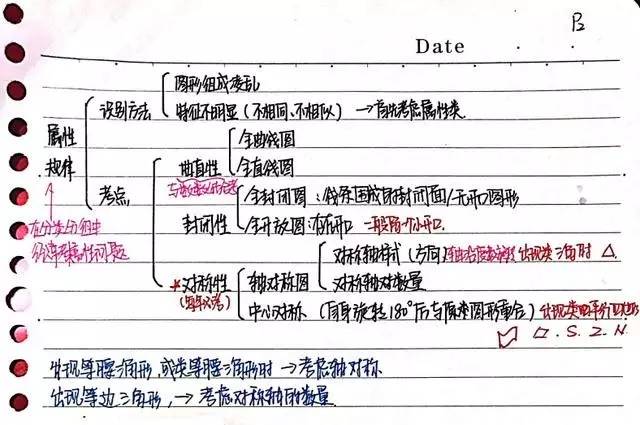 B
Date
图形组成凌乱
识别方法
特征不明显(不相同、不相似)→首先考虑属性类
属性
规律
全曲线图
曲直性
全直线图
考点
全封闭图:线条围成的封闭面/无开口图形
封闭性
全开放图:有开口 一般留一个小开口
在分类分组中
经常考属性问题
对称轴样式(方向) 出现类三角时 △
*对称性 轴对称图
对称轴对数量
(每年必考)
中心对称(自身旋转180°后与原来图形重合) 出现类平行四边形
▱.S.Z.N
出现等腰三角形,或类等腰三角形时→考虑轴对称
出现等边三角形,→考虑对称轴的数量